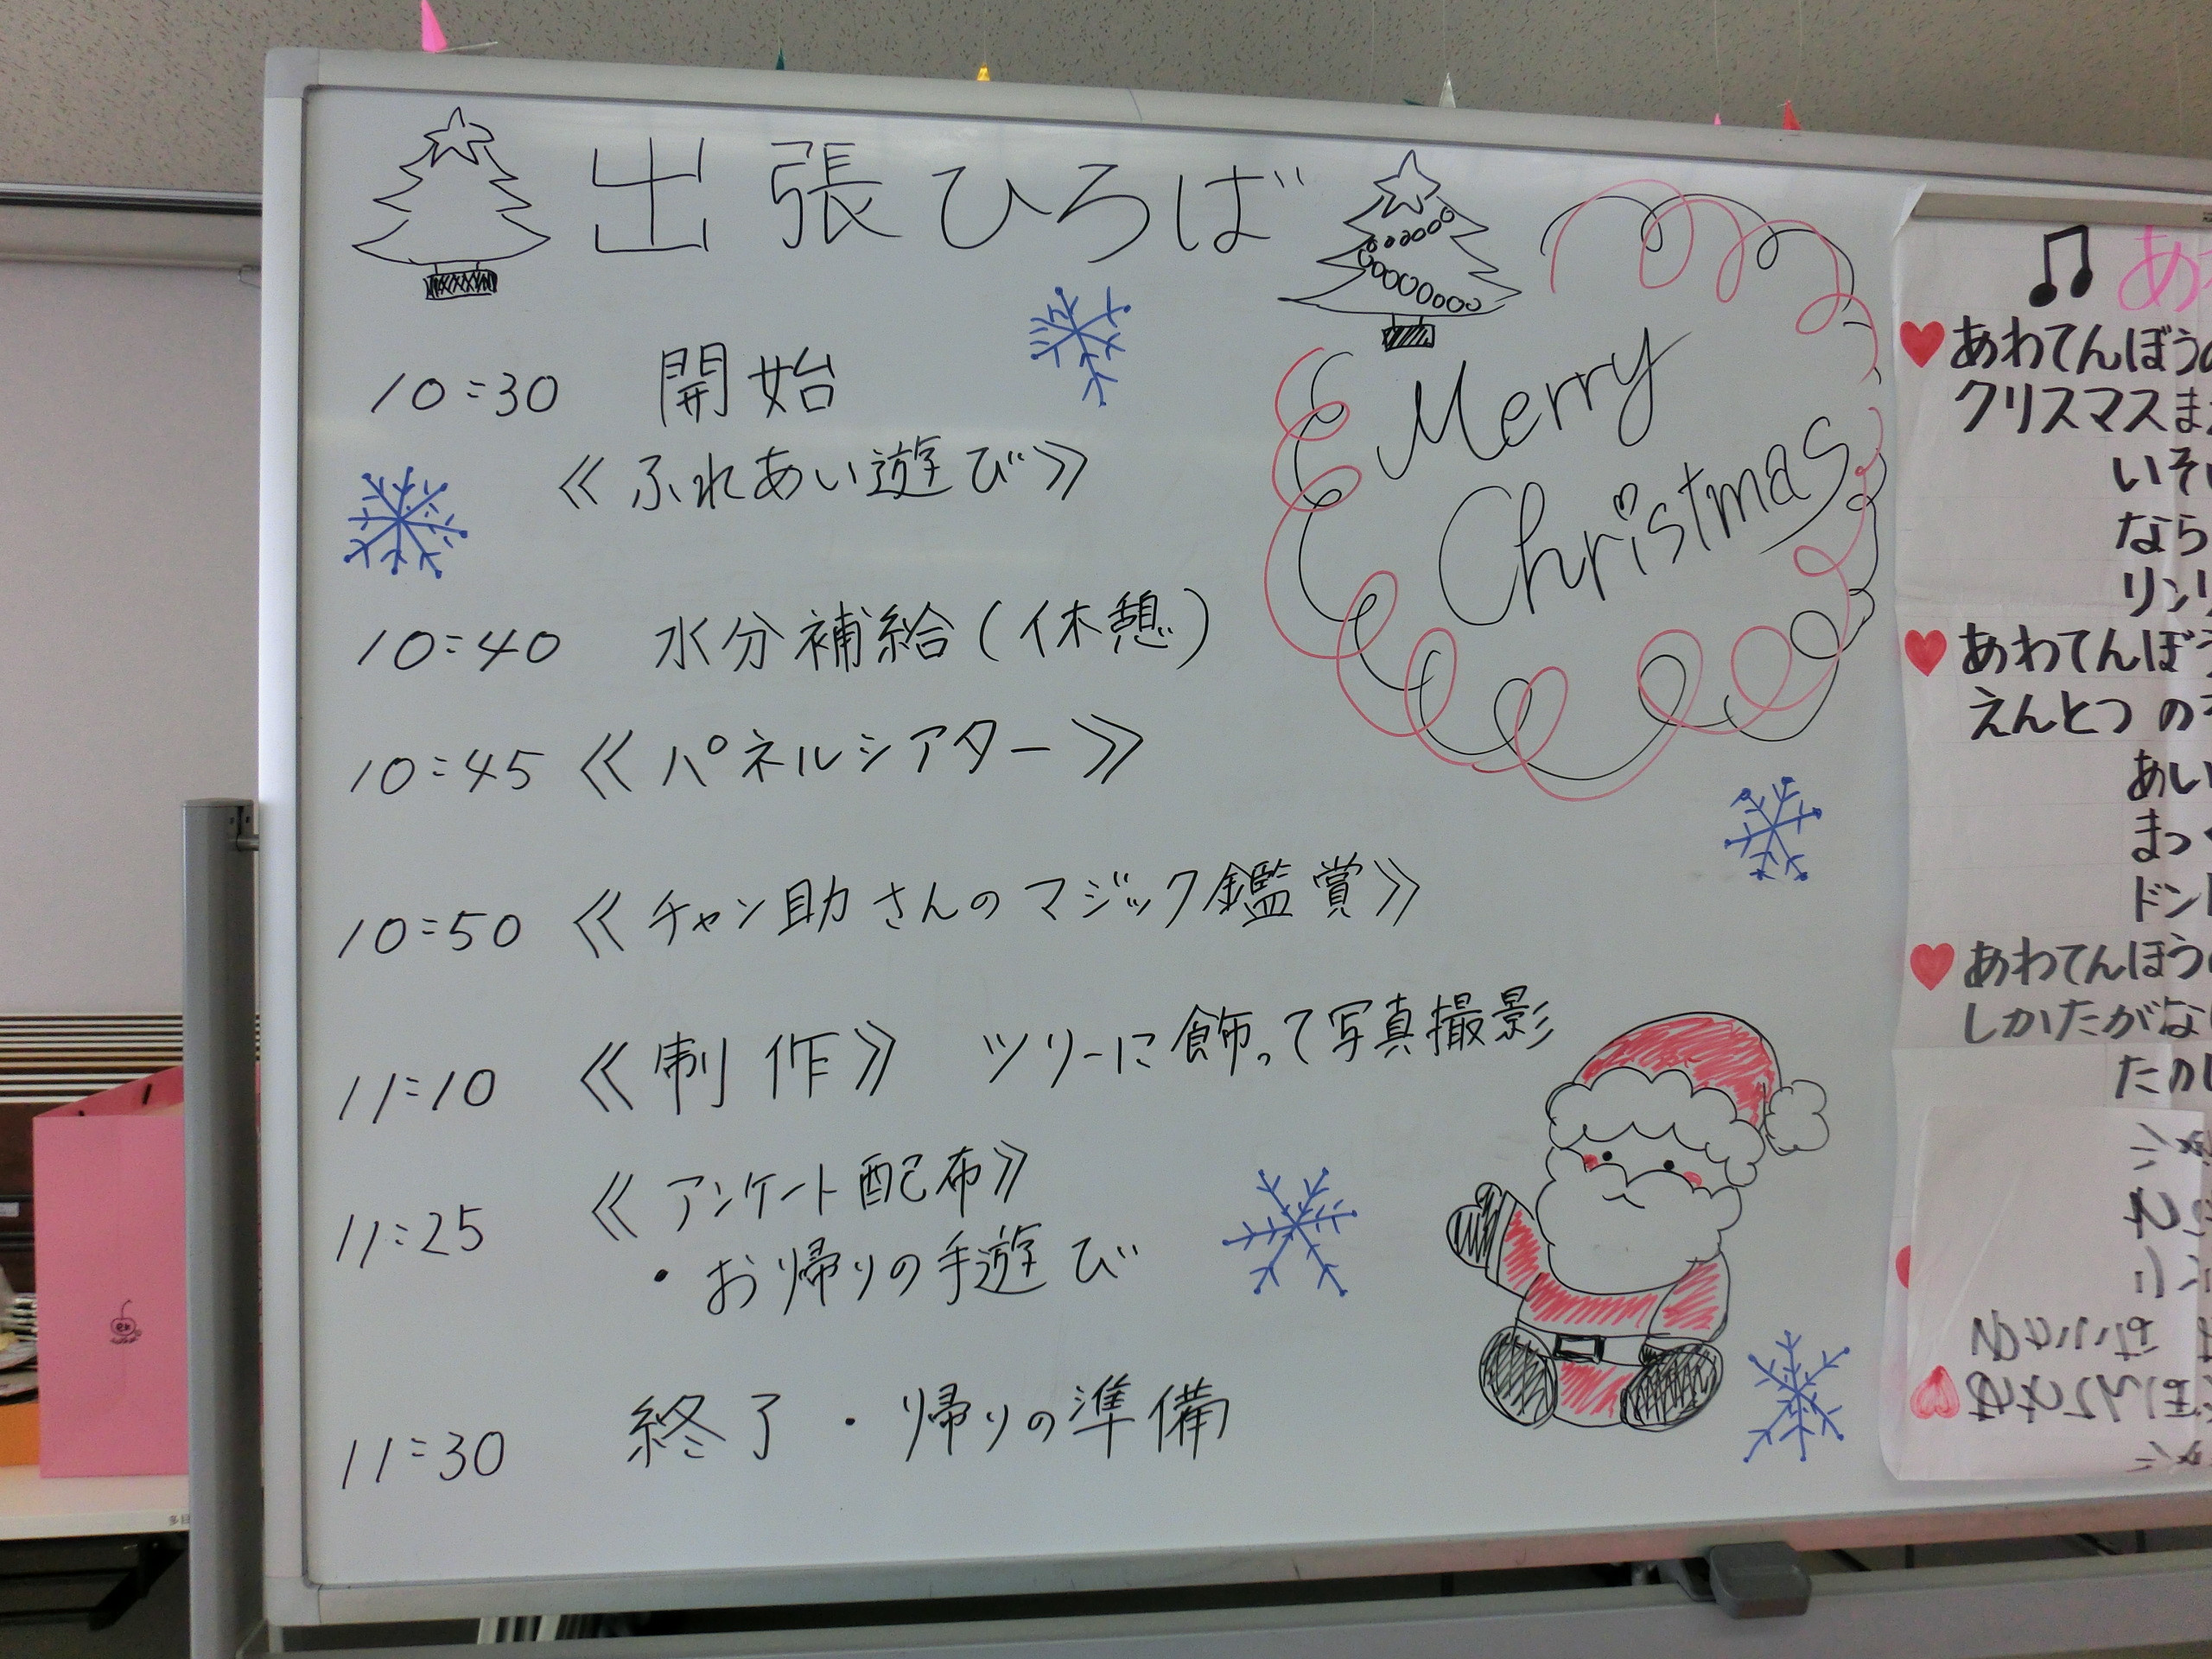 出張ひろば
Merry
Christmas
10:30 開始
《ふれあい遊び》
10:40 水分補給(休憩)
10:45 《パネルシアター》
10:50 《チャン助さんのマジック鑑賞》
11:10 《制作》 ツリーに飾って写真撮影
11:25 《アンケート配布》
・お帰りの手遊び
11:30 終了・帰りの準備
あ
あわてんぼうの
クリスマスま
いそ
なら
リンリ
あわてんぼう
えんとつの
あい
まっ
ドン
あわてんぼう
しかたがな
たの